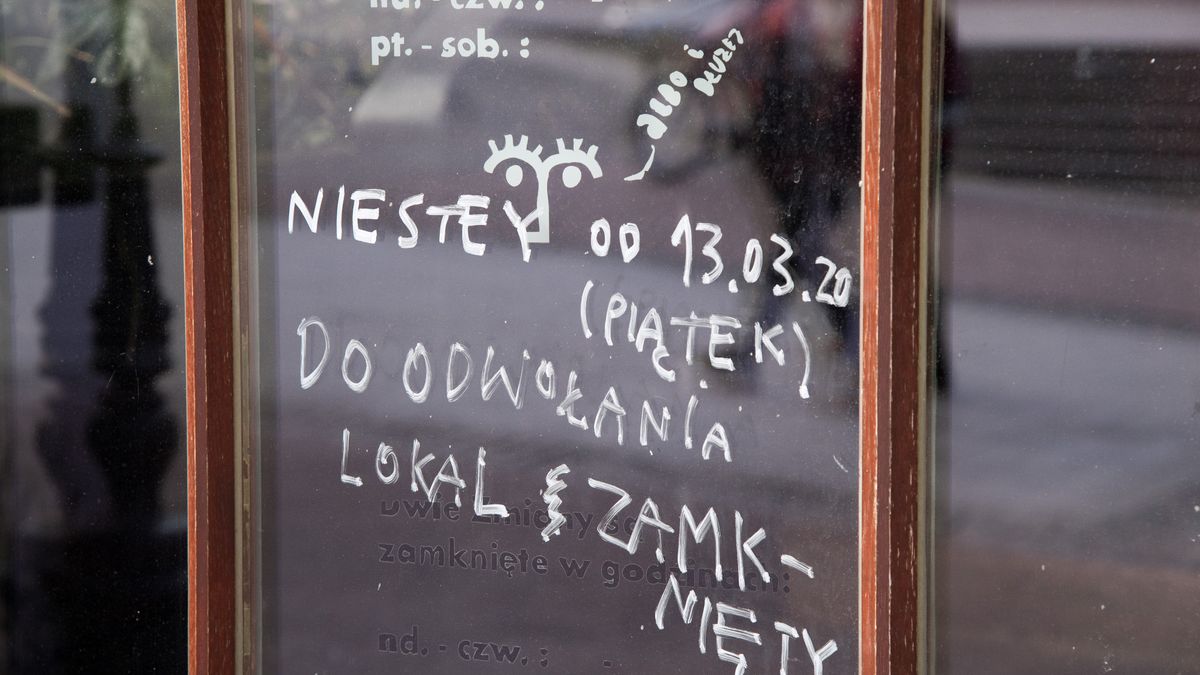 nd. - czw. : -
pt. - sob. :
albo i
dłużej
NIESTEY OD 13.03.20
(PIĄTEK)
DO ODWOŁANIA
LOKAL ZAMK-
NIĘTY
Dwie Zmiany są
zamknięte w godzinach:
nd. - czw. : -